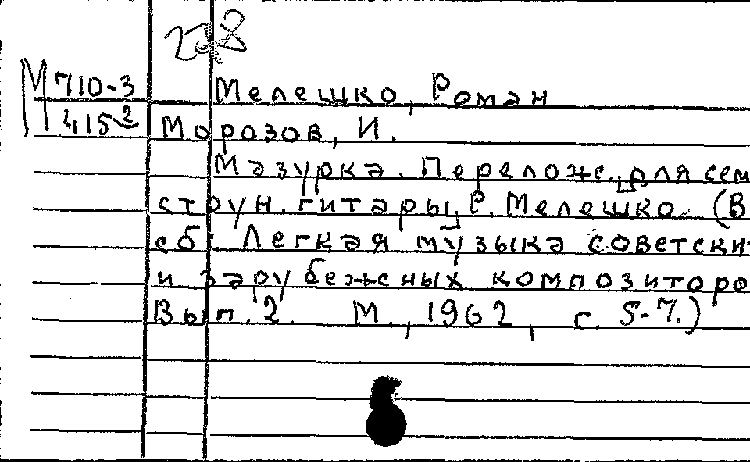 М 710-3
Мелешко, Роман
Морозов, И.
Мазурка. Перелож. для сем
струн. гитары Р. Мелешко. (В
сб. Легкая музыка советски
и зарубежных композиторо
Вып. 2. М., 1962, с. 5-7.)